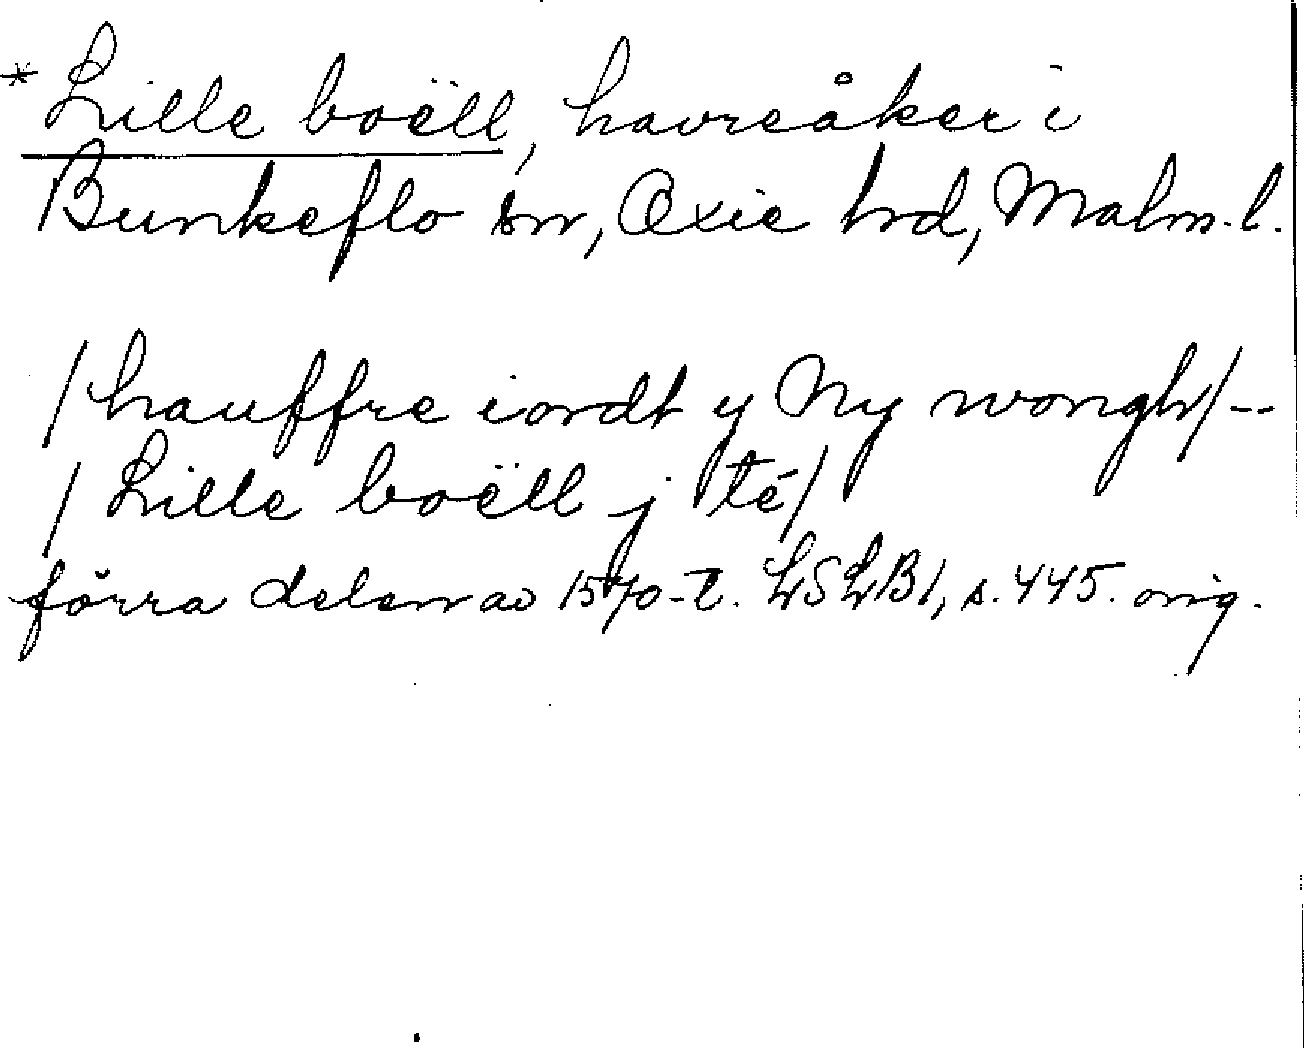 * Lille boëll, havreåker i
Bunkeflo sn, Oxie hd, Malm. l.
/hauffre iordt y Ny wongh/--
/Lille boëll j té/
förra delen av 1570-t. LSLB1, s. 445. orig.